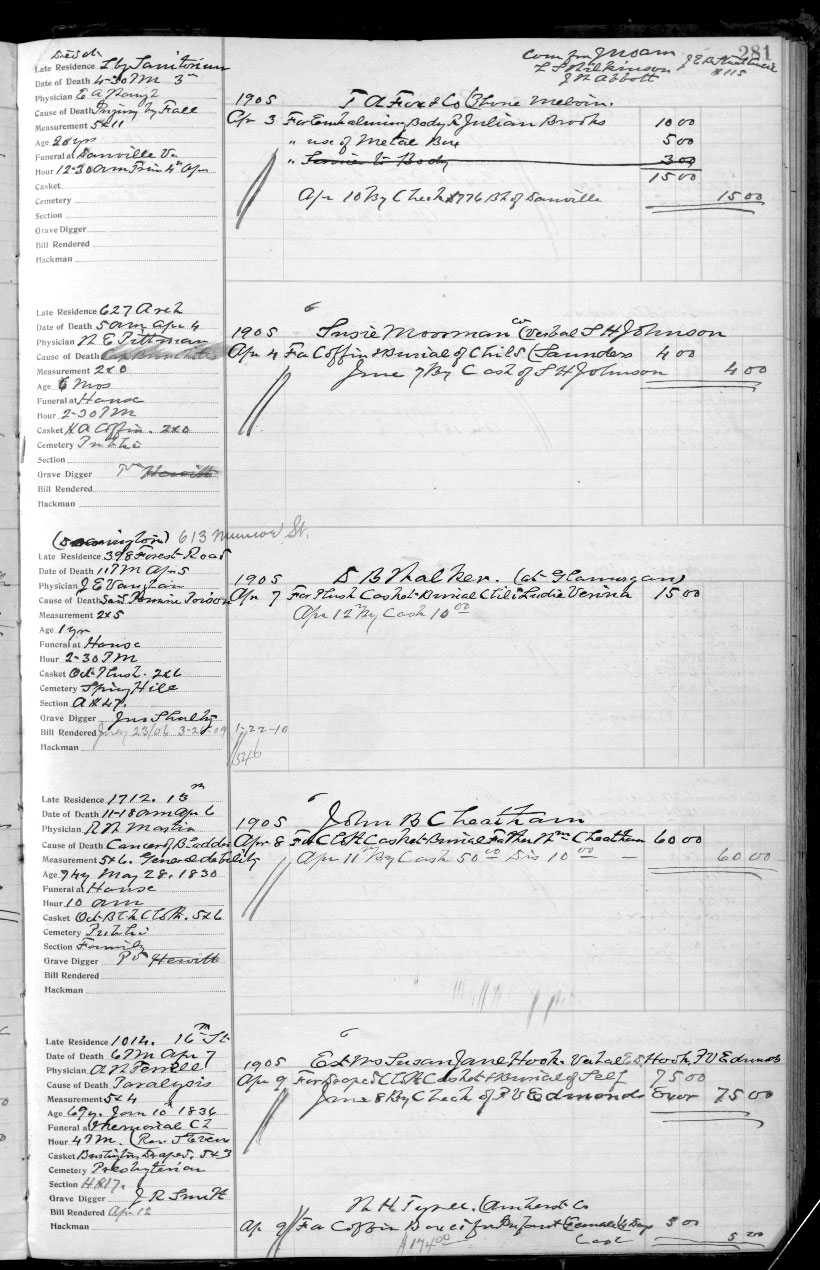 281
Died at
Late Residence Lbg Sanitorium
Date of Death 4-30 PM 3rd
Physician E A
Cause of Death Injury by Fall
Measurement 5x11
Age 20 yrs
Funeral at Danville Va
Hour 12-30 am 4th Apr
Casket
Cemetery
Section
Grave Digger
Bill Rendered
Hackman
Com fra
L S Wilkinson
J H Abbott
#115
1905 T A Fox & Co (Phone Melvin.
Apr 3 For Embalming Body R Julian Brooks 10 00
" use of Metal Box 5 00
" Service to Body 3 00
15 00
Apr 10 By Check #776 Bk of Danville 15 00
Late Residence 627 Arch
Date of Death 5 am Apr 4
Physician N E Pittman
Cause of Death Cap Bronchitis
Measurement 2x0
Age 6 Mos
Funeral at House
Hour 2-30 PM
Casket H A Coffin. 2x0
Cemetery Public
Section
Grave Digger Hewitt
Bill Rendered
Hackman
1905 Susie Moorman (Verbal S H Johnson
Apr 4 For Coffin & Burial of Child (Saunders 4 00
June 7 By Cash of S H Johnson 4 00
613 Monroe St.
Late Residence 398 Forest Road
Date of Death 11 PM Apr 5
Physician J E Vaughan
Cause of Death
Measurement 2x5
Age 1 yr
Funeral at House
Hour 2-30 PM
Casket Oct Plush. 2x6
Cemetery Spring Hill
Section A #47.
Grave Digger Jno Shultz
Bill Rendered 23/06 3-20-09 1-22-10
Hackman
546
1905 D B Walker. (at Glamorgan)
Apr 7 For Plush Casket & Burial Child Ludie Verina 15 00
Apr 12 By Cash 10 00
Late Residence 1712. 13th
Date of Death 11-18 am Apr 6
Physician R N Martin
Cause of Death Cancer of Bladder
Measurement 5x6. General debility
Age 74y May 28, 1830
Funeral at House
Hour 10 am
Casket Oct Blk Cloth. 5x6
Cemetery Public
Section Family
Grave Digger Hewitt
Bill Rendered
Hackman
1905 John B Cheatham
Apr 8 For Cloth Casket & Burial Father Wm Cheatham 60 00
Apr 11 By Cash 50 00 Dis 10 00 — 60 00
Late Residence 1014. 16th St
Date of Death 6 PM Apr 7
Physician A N Terrell
Cause of Death Paralysis
Measurement 5x4
Age 69y. Jan 10th 1836
Funeral at Memorial Ch
Hour 4 PM. (Rev.
Casket Draped. 5x3
Cemetery Presbyterian
Section H #17.
Grave Digger J R Smith
Bill Rendered Apr 12
Hackman
1905 Est Mrs Susan Jane Hook. Verbal E S Hook, P V Edmunds
Apr 9 For Draped Cloth Casket & Burial of Self 75 00
June 8 By Check of P V Edmonds Exor 75 00
N H Tyree. (Amherst Co
Apr 9 For Coffin & Box for Infant (Female 4 Days 5 00
Cash 5 00
$174 00